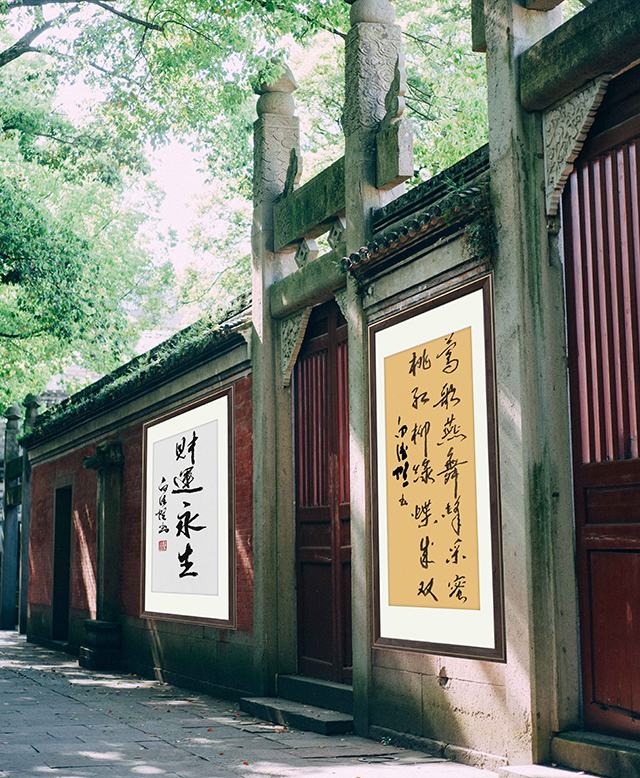 財運永生
莺歌燕舞蜂采蜜
桃红柳绿蝶成双